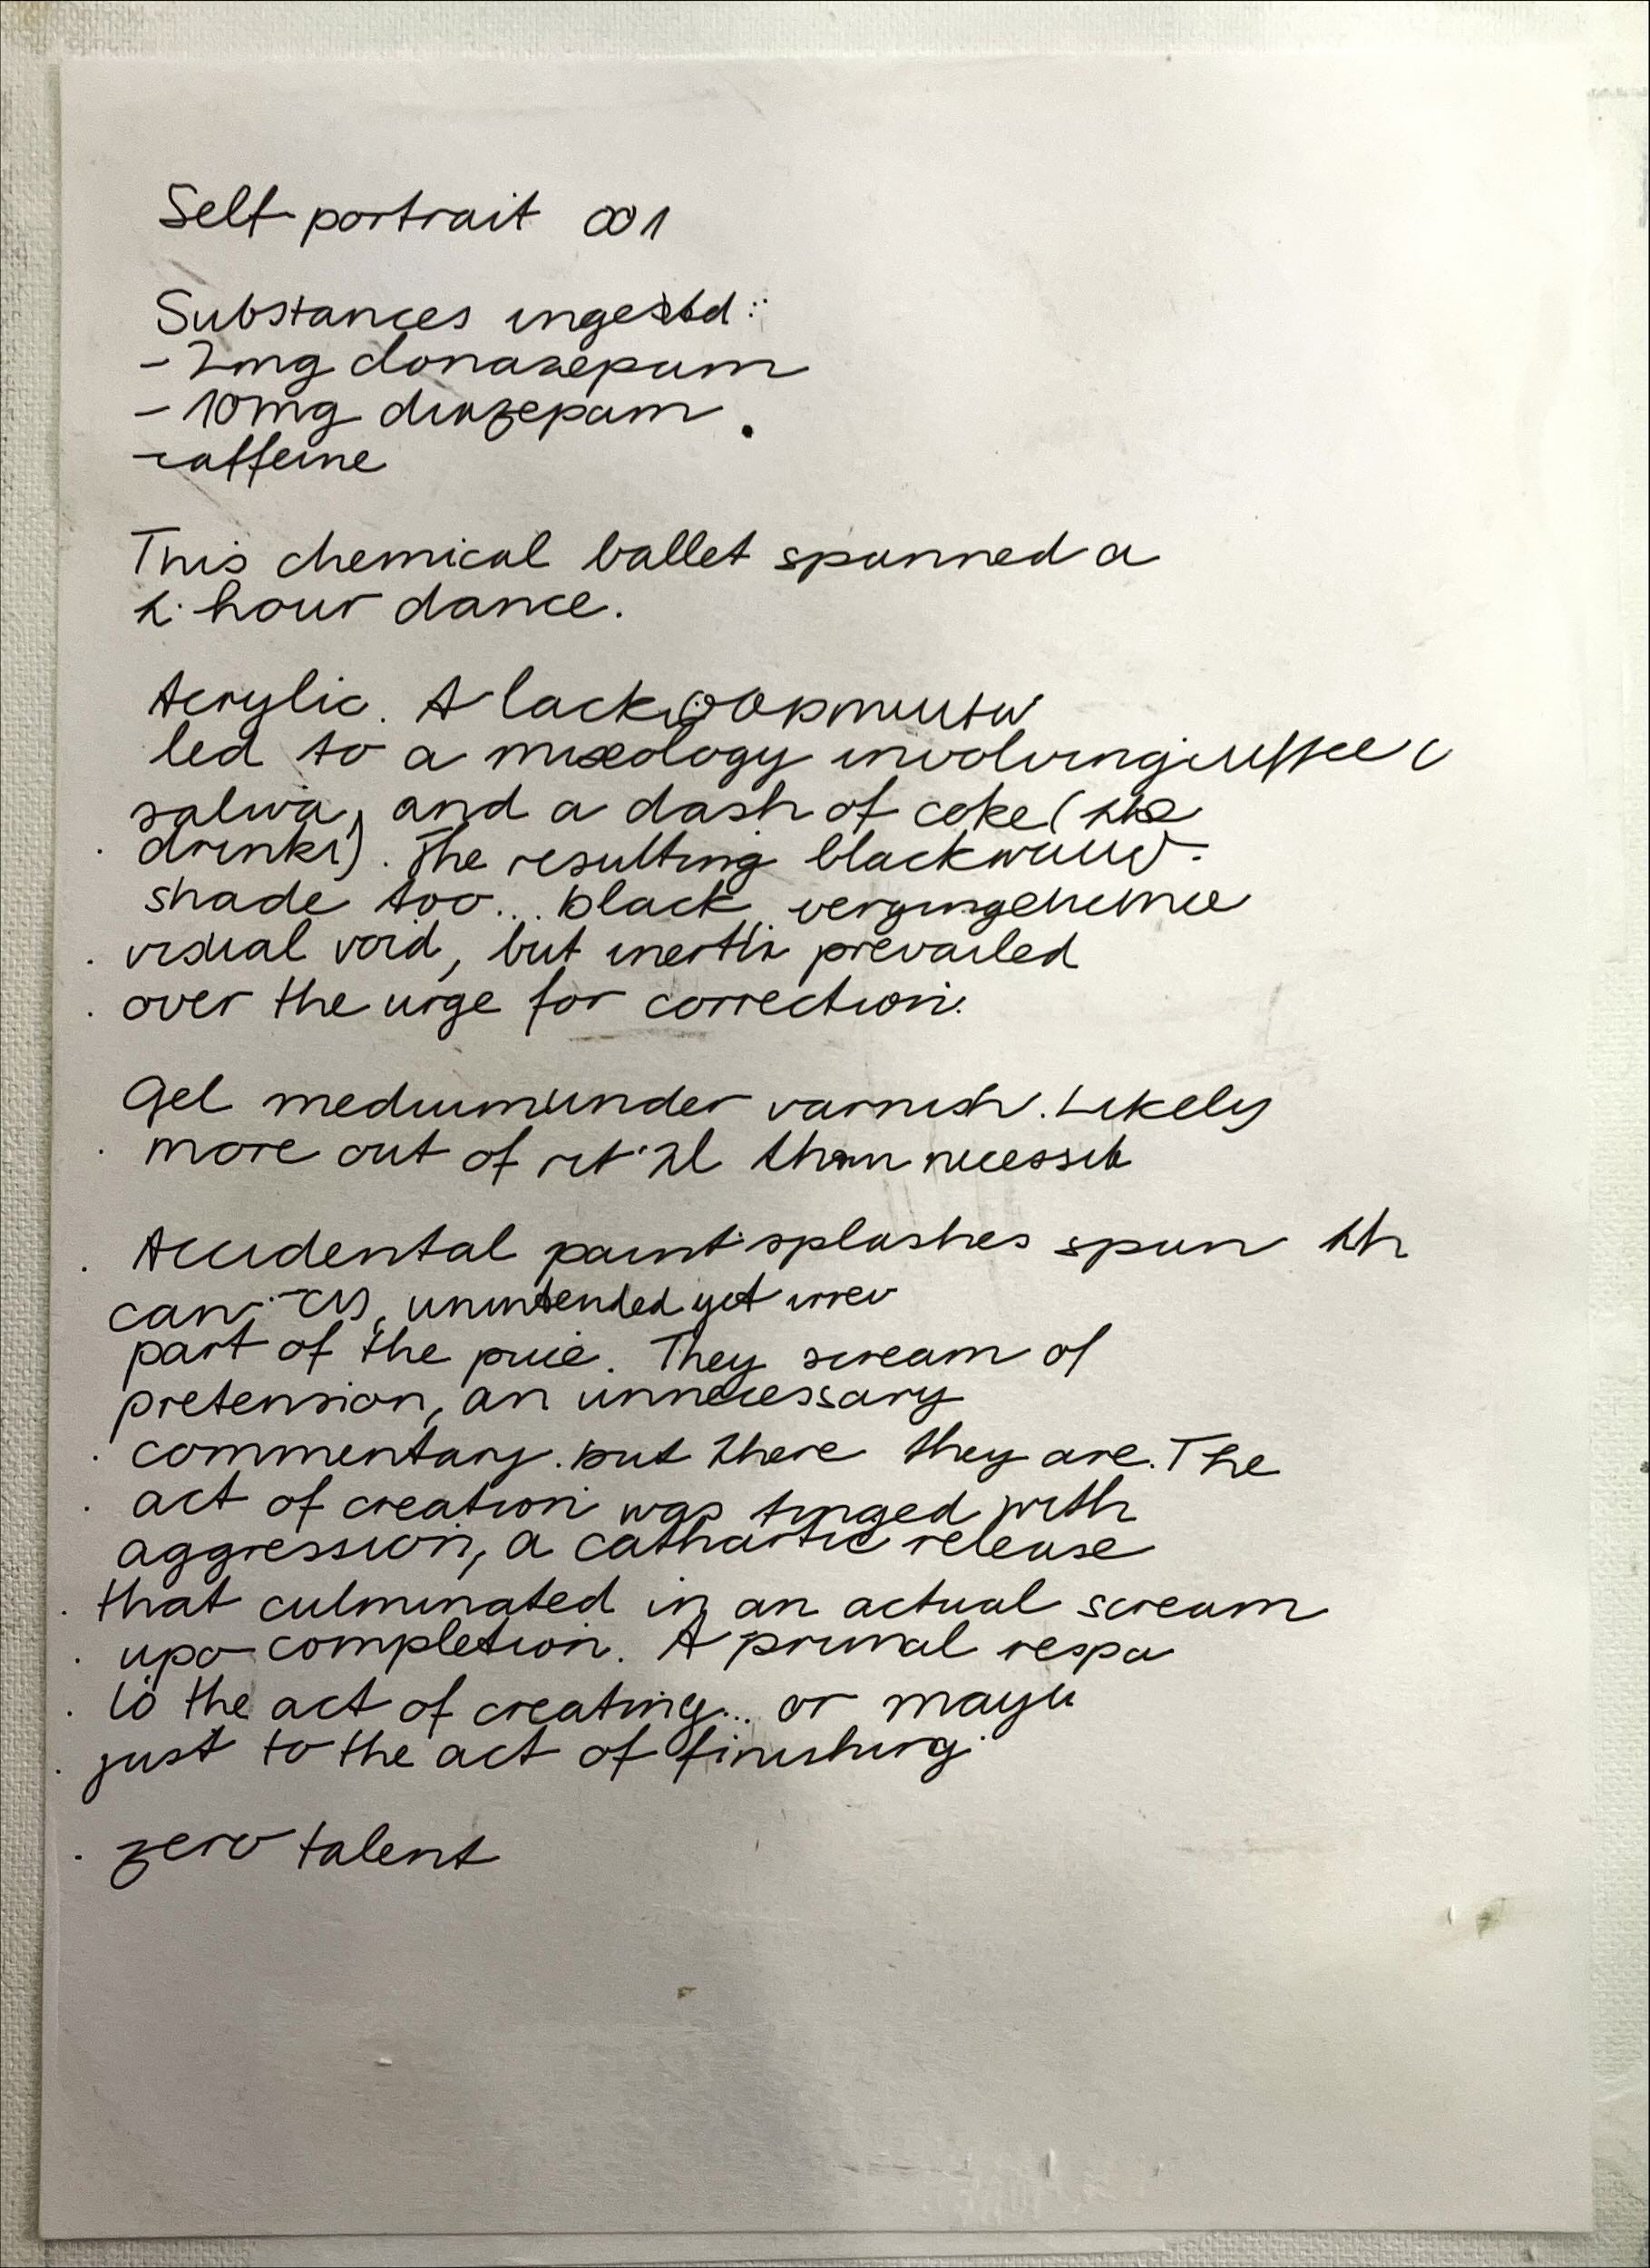 Self-portrait 001
Substances ingested:
- 2mg clonazepam
- 10mg diazepam
- caffeine
This chemical ballet spanned a
hour dance.
Acrylic. A lack of
led to a mixology involving coffee
saliva, and a dash of coke (the
drink). The resulting black was
shade too... black, verging
visual void, but inertia prevailed
over the urge for correction.
Gel medium under varnish. Likely
more out of ritual than
Accidental paint splashes span th
unintended yet irrev
part of the piece. They scream of
pretension, an unnecessary
commentary. but there they are. The
act of creation was tinged with
aggression, a cathartic release
that culminated in an actual scream
upo completion. A primal respo
to the act of creating... or
just to the act of finishing.
zero talent